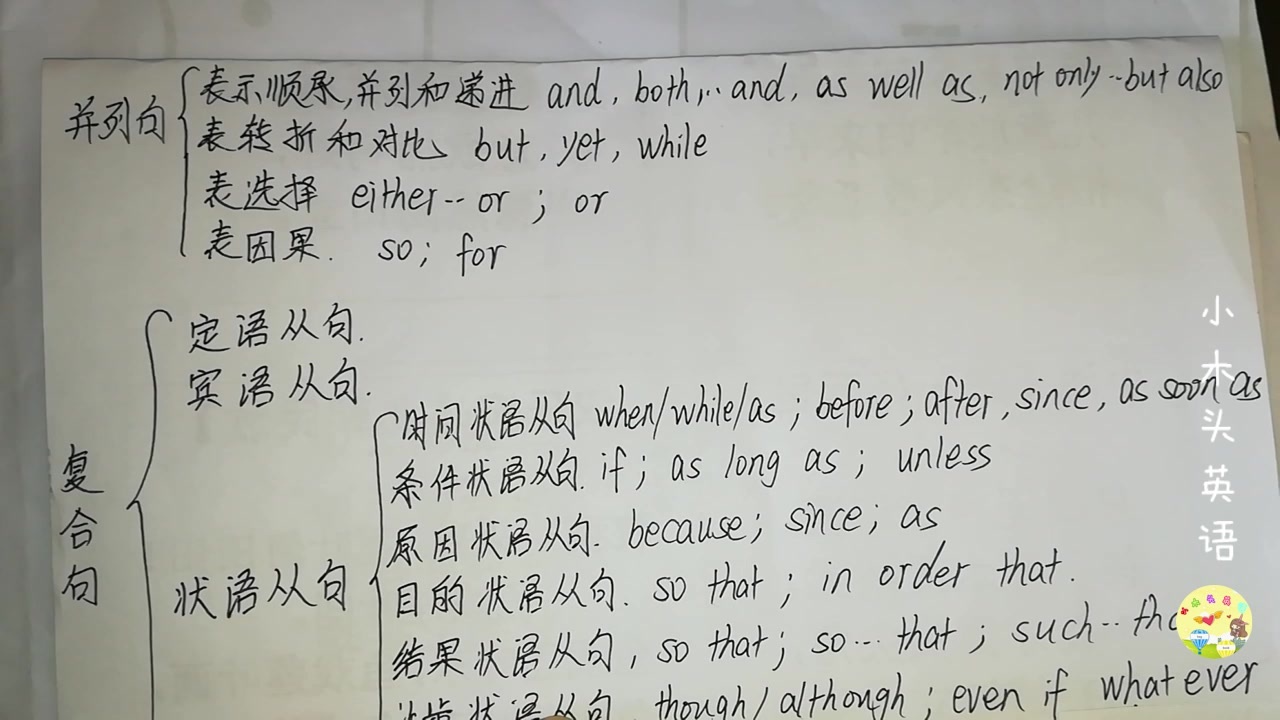 并列句
表示顺承,并列和递进 and, both...and, as well as, not only...but also
表转折和对比 but, yet, while
表选择 either...or ; or
表因果. so; for
复合句
定语从句.
宾语从句.
状语从句
时间状语从句 when/while/as ; before ; after, since, as soon as
条件状语从句. if ; as long as ; unless
原因状语从句. because; since; as
目的状语从句. so that ; in order that.
结果状语从句, so that ; so...that ; such...
状语从句 though/although ; even if whatever
小木头英语